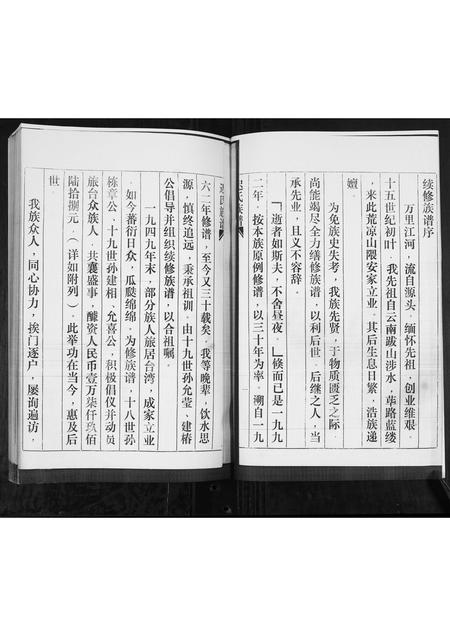 续修族谱序
万里江河，流自源头。缅怀先祖，创业维艰。
十五世纪初叶，我先祖自云南跋山涉水，筚路蓝缕
，来此荒凉山隈安家立业。其后生息日繁，浩族递
嬗。
为免族史失考，我族先贤，于物质匮乏之际，
尚能竭尽全力缮修族谱，以利后世。后继之人，当
承先业，且义不容辞。
「逝者如斯夫，不舍昼夜。」候而已是一九九
二年。按本族原例修谱，以三十年为率。溯自一九
氏族谱
六二年修谱，至今又三十载矣。我等晚辈，饮水思
源，慎终追远，秉承祖训。由十九世孙允莹、建椿
公倡导并组织续修族谱，以合祖嘱。
一九四九年末，部分族人旅居台湾，成家立业
，如今蕃衍日众，瓜瓞绵绵。为修族谱，十八世孙
栋章公、十九世孙建相、允喜公，积极倡仪并动员
旅台众族人，共襄盛事，醵资人民币壹万柒仟玖佰
陆拾捌元。（详如附列）。此举功在当今，惠及后
世。
我族众人，同心协力，挨门逐户，屡询遍访，